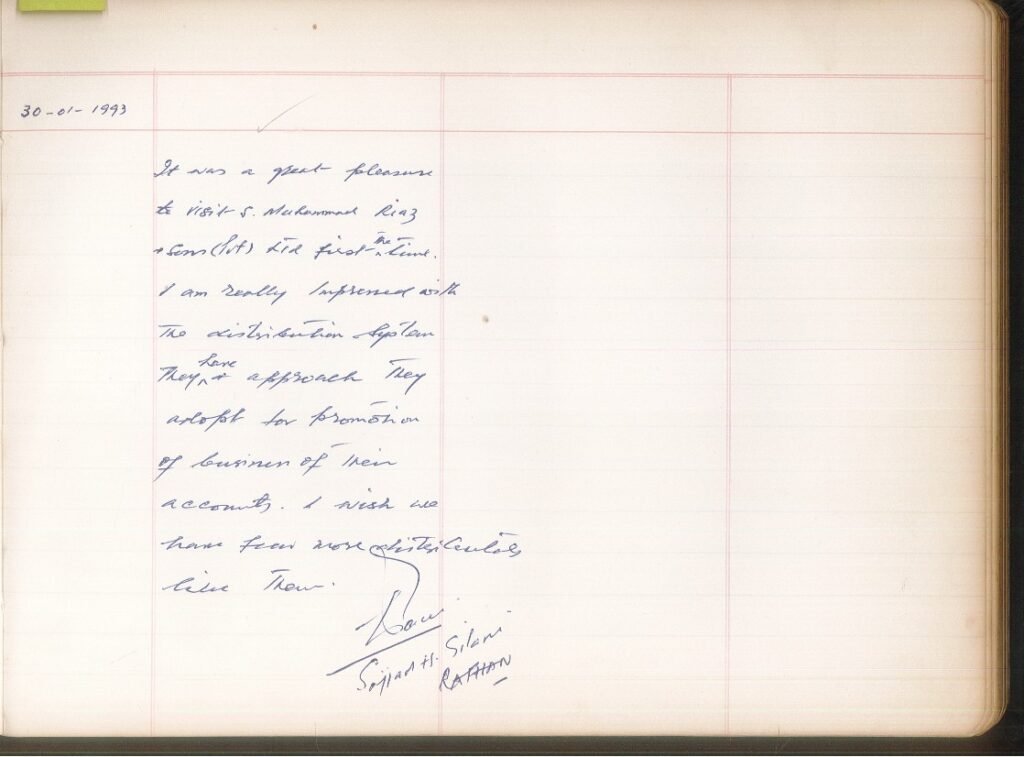 30-01-1993
It was a great pleasure
to visit S. Muhammad Riaz
+ Sons (Pvt) Ltd first the time.
I am really Impressed with
The distribution System
They have + approach They
adopt for promotion
of business of Their
accounts. I wish we
have few more distributors
like Them.
Sajjad H. Gilani